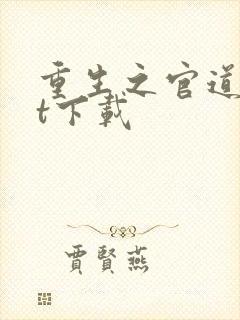 重生之官道
t下载
賈賢燕